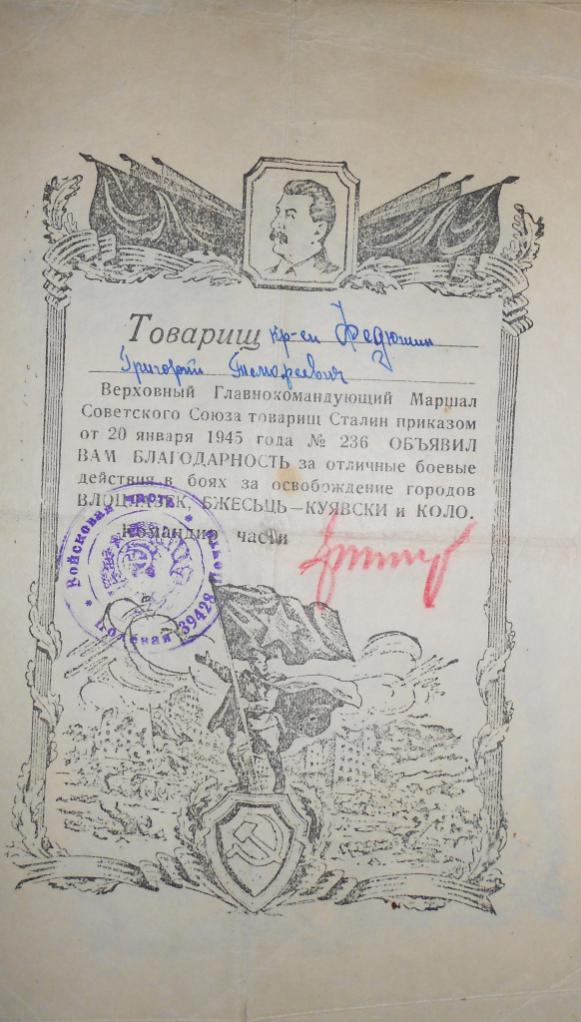 Товарищ кр-ец Федюшин
Григорий Тимофеевич
Верховный Главнокомандующий Маршал
Советского Союза товарищ Сталин приказом
от 20 января 1945 года № 236 ОБЪЯВИЛ
ВАМ БЛАГОДАРНОСТЬ за отличные боевые
действия в боях за освобождение городов
ВЛОЦЛАВЕК, БЖЕСЬЦЬ—КУЯВСКИ и КОЛО.
Командир части
Войсковая часть * Полевая почта 39428 *